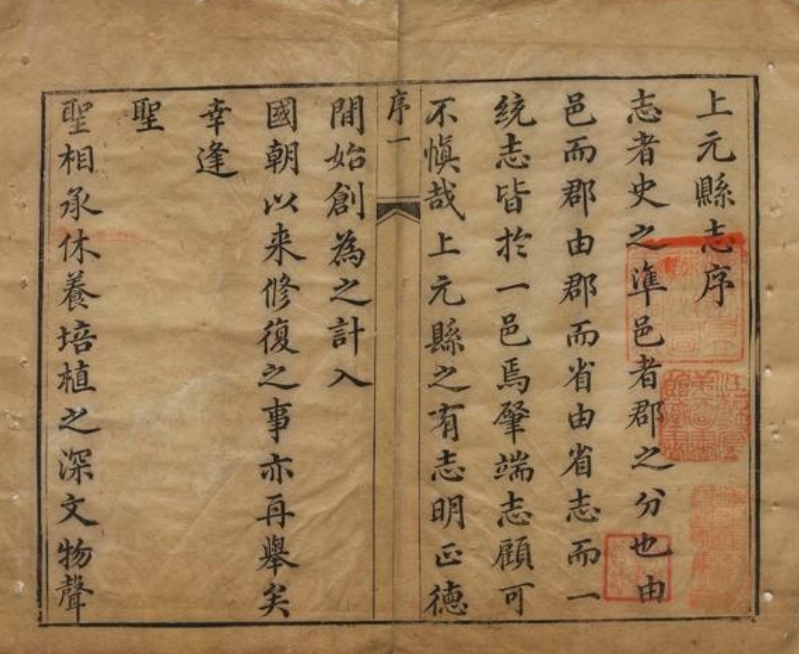 上元縣志序
志者史之準邑者郡之分也由
邑而郡由郡而省由省志而一
統志皆於一邑焉肇端志顧可
不慎哉上元縣之有志明正德
序一
間始創為之計入
國朝以来修復之事亦再舉矣
幸逢
聖
聖相承休養培植之深文物聲